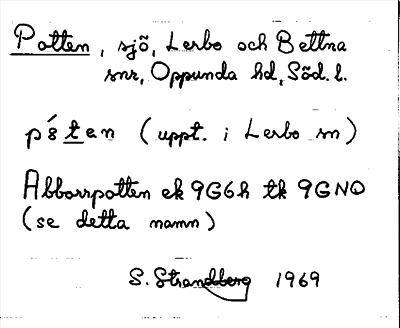 Potten, sjö, Lerbo och Bettna
snr, Oppunda hd, Söd. l.
(uppt. i Lerbo sn)
Abborrpotten ek 9G6h tk 9GNO
(se detta namn)
S. Strandberg 1969